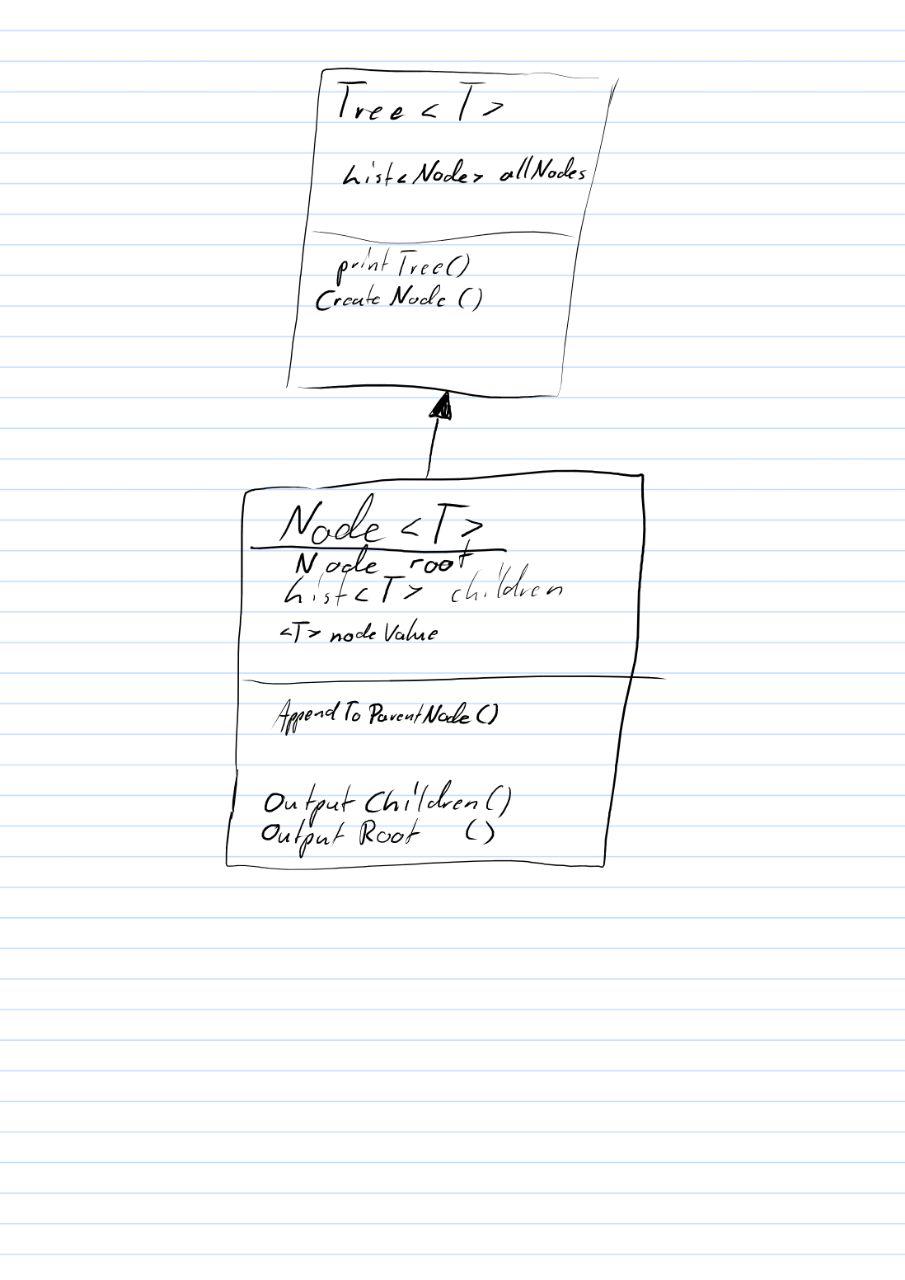 Tree <T>
List<Node> allNodes
printTree()
Create Node ()
Node <T>
Node root
List<T> children
<T> nodeValue
AppendToParentNode()
Output Children()
Output Root ()